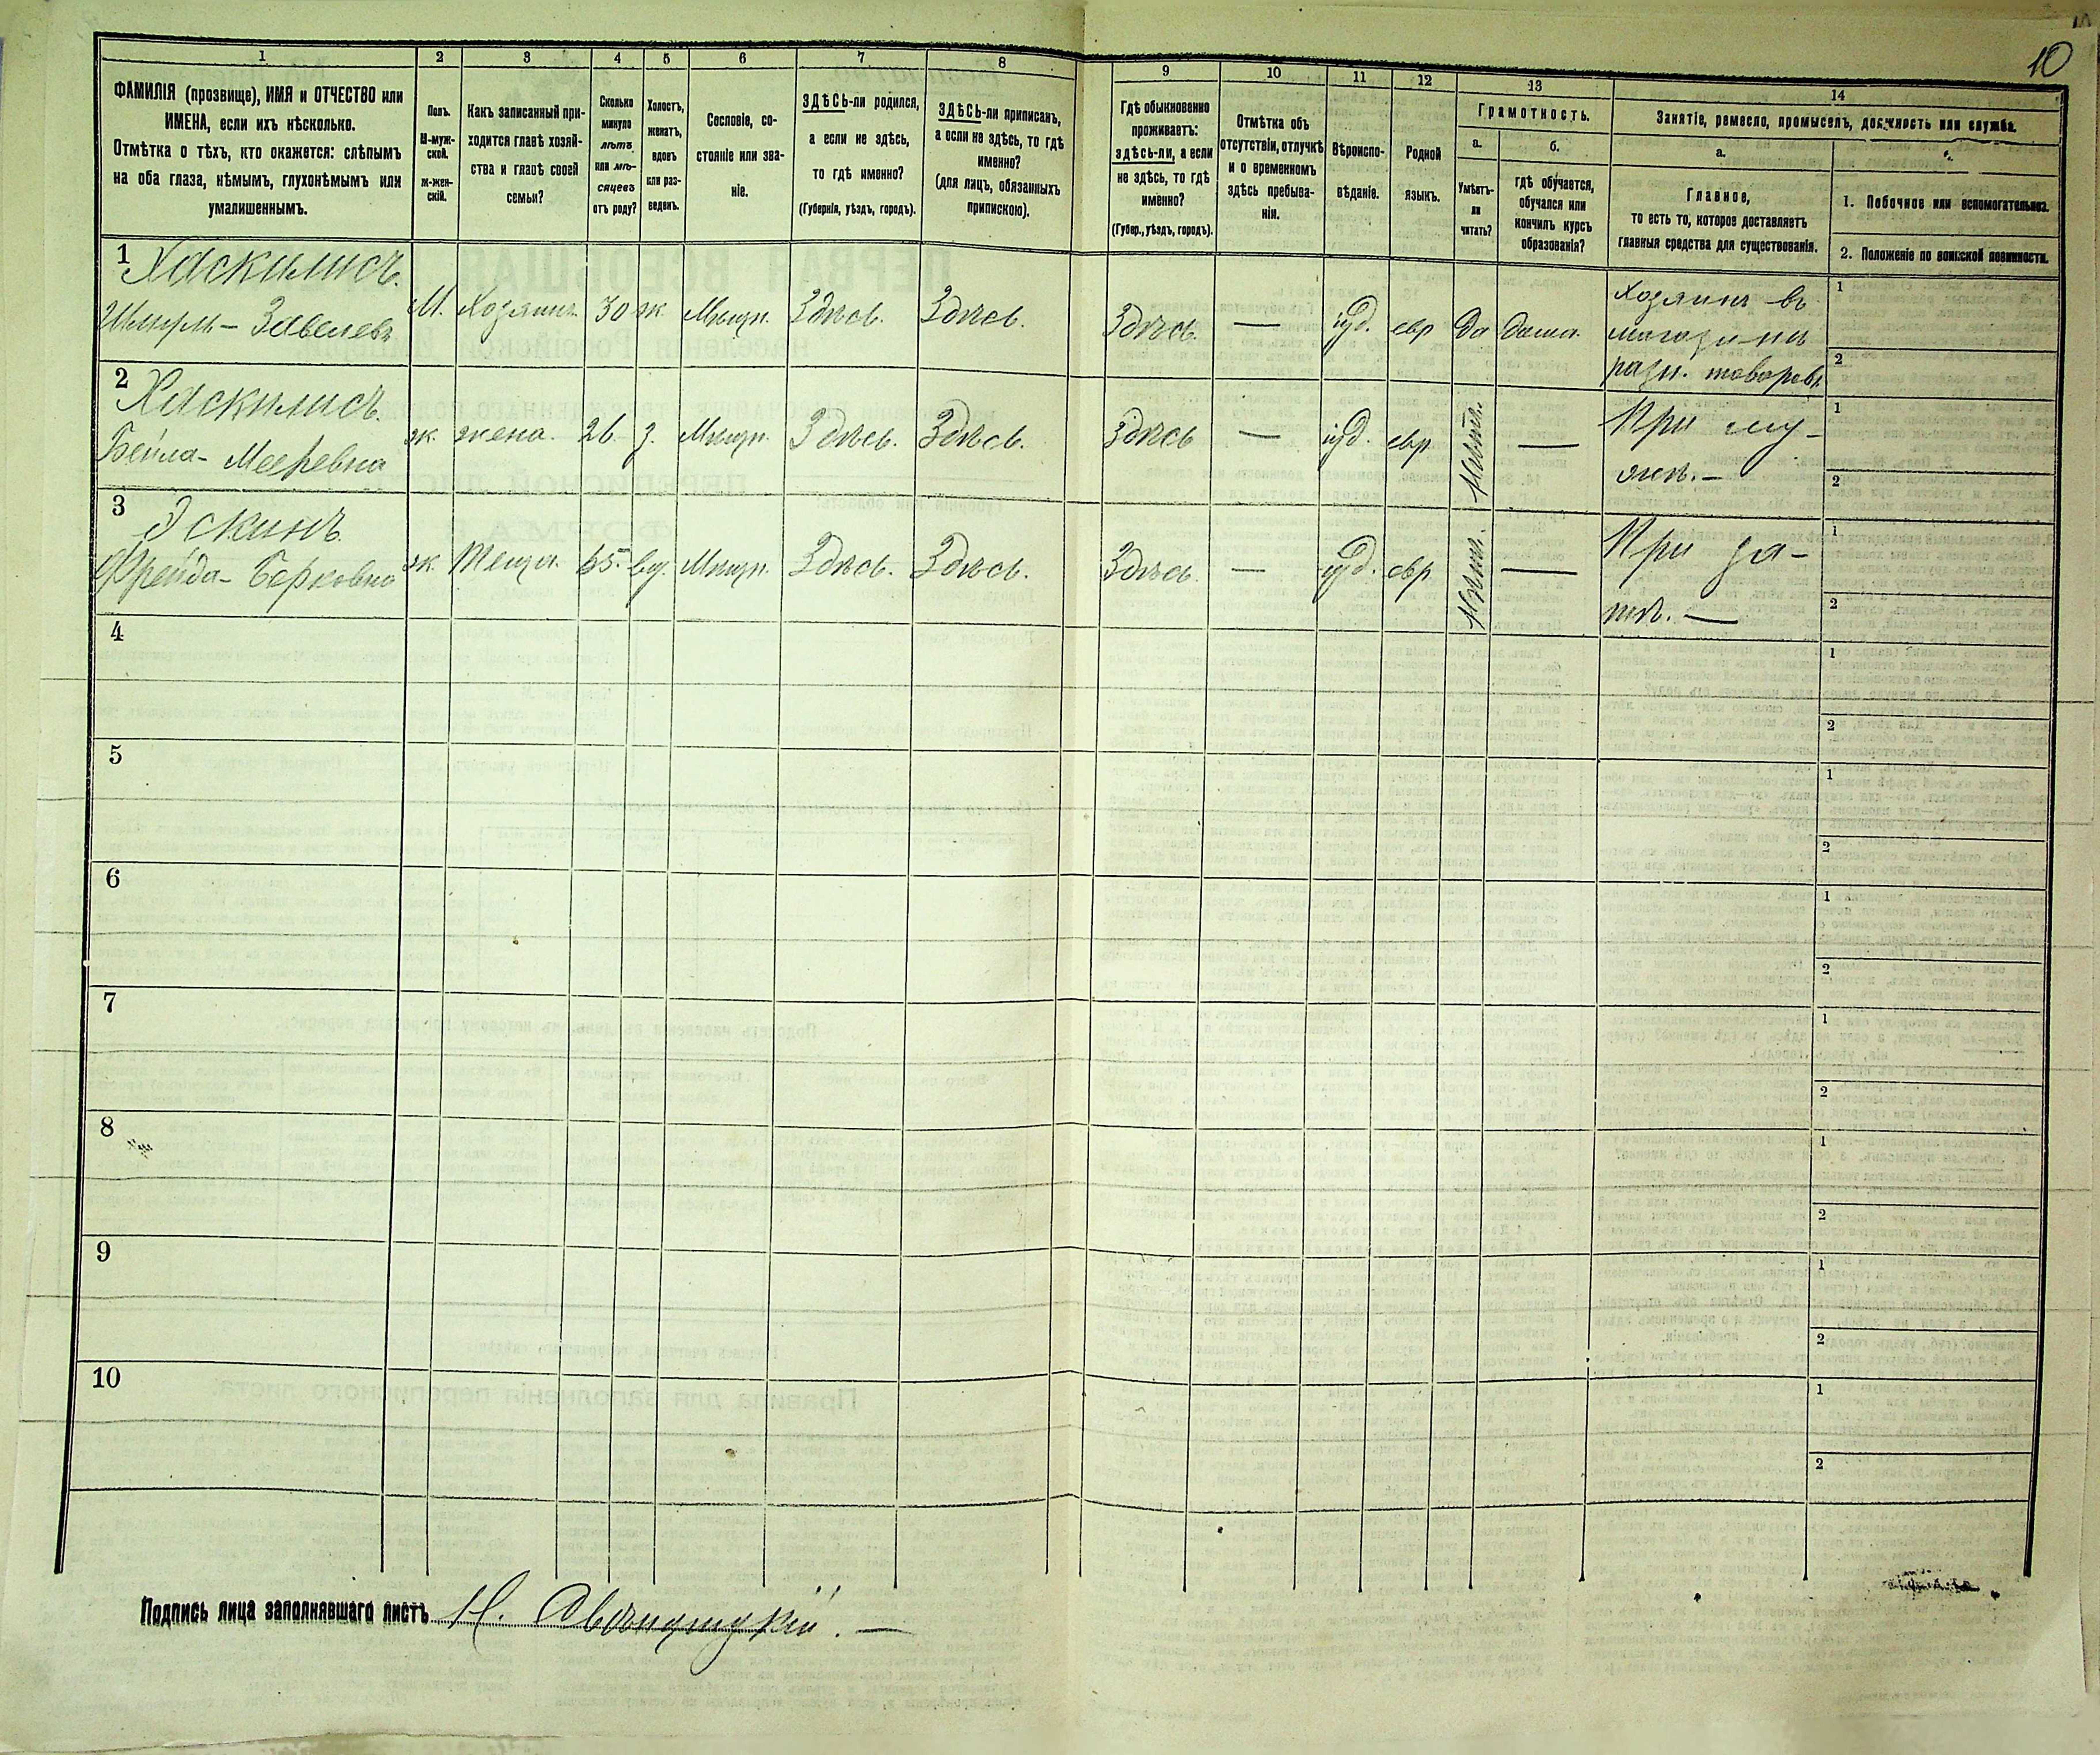 10
1 2 3 4 5 6 7 8 9 10 11 12 13 14
ФАМИЛІЯ (прозвище), ИМЯ и ОТЧЕСТВО или
ИМЕНА, если ихъ нѣсколько.
Отмѣтка о тѣхъ, кто окажется: слѣпымъ
на оба глаза, нѣмымъ, глухонѣмымъ или
умалишеннымъ.
Полъ.
М-муж-
ской.
ж-жен-
скій.
Какъ записанный при-
ходится главѣ хозяй-
ства и главѣ своей
семьи?
Сколько
минуло
лѣтъ
или мѣ-
сяцевъ
отъ роду?
Холостъ,
женатъ,
вдовъ
или раз-
веденъ.
Сословіе, со-
стояніе или зва-
ніе.
ЗДѢСЬ-ли родился,
а если не здѣсь,
то гдѣ именно?
(Губернія, уѣздъ, городъ).
ЗДѢСЬ-ли приписанъ,
а если не здѣсь, то гдѣ
именно?
(для лицъ, обязанныхъ
припискою).
Гдѣ обыкновенно
проживаетъ:
здѣсь-ли, а если
не здѣсь, то гдѣ
именно?
(Губер., уѣздъ, городъ).
Отмѣтка объ
отсутствіи, отлучкѣ
и о временномъ
здѣсь пребыва-
ніи.
Вѣроиспо-
вѣданіе.
Родной
языкъ.
Грамотность.
а.
Умѣетъ-
ли
читать?
б.
гдѣ обучается,
обучался или
кончилъ курсъ
образованія?
Занятіе, ремесло, промыселъ, должность или служба.
а.
Главное,
то есть то, которое доставляетъ
главныя средства для существованія.
1. Побочное или вспомогательное.
2. Положеніе по воинской повинности.
1 Хаскилисъ.
Шмуль - Завелевъ М. Хозяинъ 30 ж Мѣщн. Здѣсь. Здѣсь. Здѣсь. — іуд. евр да дома. Хозяинъ въ
магазинѣ
разн. товаровъ
1
2
2 Хаскилисъ.
Бейла- Мееровна ж. жена. 26. з. Мѣщн. Здѣсь. Здѣсь. Здѣсь — іуд. евр. — При му-
жѣ. —
1
2
3 Эскинъ
Фрейда- Берковна ж. Теща. 65. вд. Мѣщн. Здѣсь. Здѣсь. Здѣсь. — іуд. евр — При зя-
тѣ. —
1
2
4 1
2
5 1
2
6 1
2
7 1
2
8 1
2
9 1
2
10 1
2
Подпись лица заполнявшаго листъ